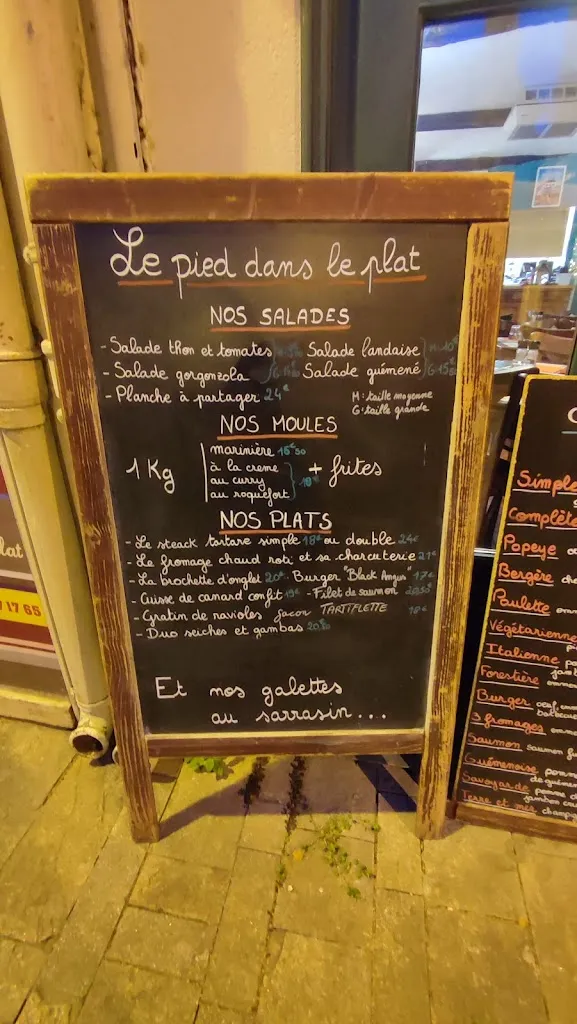 Le pied dans le plat
NOS SALADES
- Salade thon et tomates Salade landaise
- Salade gorgonzola Salade guémené
- Planche à partager 24€
M: taille moyenne
G: taille grande
NOS MOULES
1 Kg
marinière
à la creme
au curry
au roquefort
+ frites
NOS PLATS
- Le steack tartare simple 18€ ou double 24€
- Le fromage chaud roti et sa charcuterie 21€
- La brochette d'onglet 20€ - Burger "Black Angus" 17€
- Cuisse de canard confit 19€ - Filet de saumon
- Gratin de ravioles facon TARTIFLETTE
- Duo seiches et gambas
Et nos galettes
au sarrasin...
lat
17 65
Simple
Complète
Popeye
Bergère
Paulette
Végétarienne
Italienne
Forestière
Burger
3 fromages
Saumon
Guémenoise
Savoyarde
Terre et mer